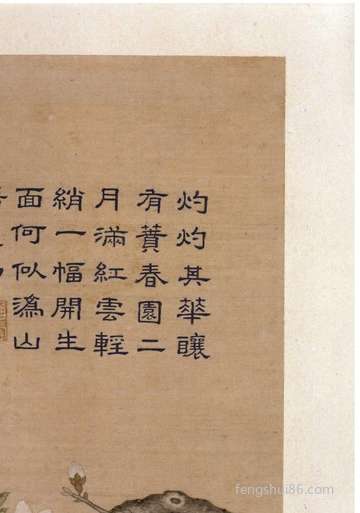 灼灼其華釀
有蕡春園二
月滿紅雲輕
綃一幅開生
面何似潙山
fengshui86.com